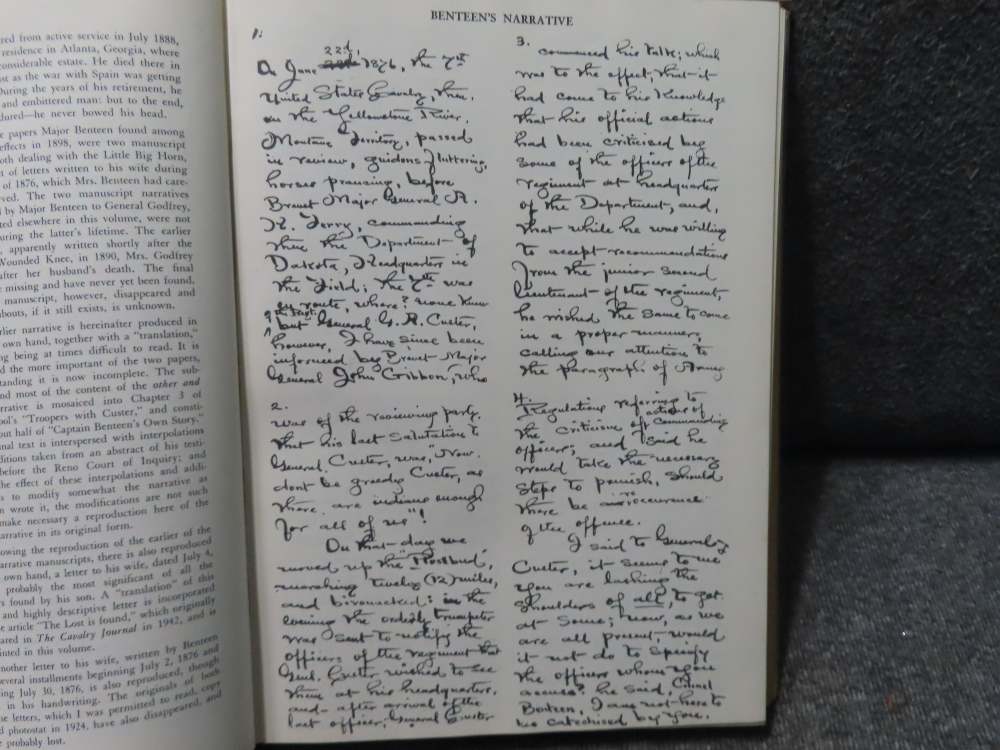 red from active service in July 1888,
residence in Atlanta, Georgia, where
onsiderable estate. He died there in
st as the war with Spain was getting
During the years of his retirement, he
and embittered man: but to the end,
dured—he never bowed his head.
e papers Major Benteen found among
effects in 1898, were two manuscript
oth dealing with the Little Big Horn,
t of letters written to his wife during
of 1876, which Mrs. Benteen had care-
ved. The two manuscript narratives
d by Major Benteen to General Godfrey,
ted elsewhere in this volume, were not
uring the latter's lifetime. The earlier
, apparently written shortly after the
Wounded Knee, in 1890, Mrs. Godfrey
after her husband's death. The final
e missing and have never yet been found,
manuscript, however, disappeared and
bouts, if it still exists, is unknown.
rlier narrative is hereinafter produced in
own hand, together with a "translation,"
ng being at times difficult to read. It is
d the more important of the two papers,
tanding it is now incomplete. The sub-
nd most of the content of the other and
rrative is mosaiced into Chapter 3 of
ool's "Troopers with Custer," and consti-
out half of "Captain Benteen's Own Story."
nal text is interspersed with interpolations
ditions taken from an abstract of his testi-
before the Reno Court of Inquiry; and
he effect of these interpolations and addi-
s to modify somewhat the narrative as
n wrote it, the modifications are not such
make necessary a reproduction here of the
arrative in its original form.
owing the reproduction of the earlier of the
arrative manuscripts, there is also reproduced
own hand, a letter to his wife, dated July 4,
probably the most significant of all the
s found by his son. A "translation" of this
and highly descriptive letter is incorporated
e article "The Lost is found," which originally
ared in The Cavalry Journal in 1942, and is
inted in this volume.
nother letter to his wife, written by Benteen
everal installments beginning July 2, 1876 and
ing July 30, 1876, is also reproduced, though
in his handwriting. The originals of both
se letters, which I was permitted to read, copy
d photostat in 1924, have also disappeared, and
e probably lost.
BENTEEN'S NARRATIVE
1.
On June 22d, 1876, the 7th
United States Cavalry, then
on the Yellowstone River,
Montana Territory, passed
in review, guidons fluttering,
horses prancing, before
Brevet Major General A.
H. Terry, commanding
then the Department of
Dakota, Headquarters in
the Field; the 7th was
en route, where? none knew
of the Regt.
but General G. A. Custer,
however, I have since been
informed by Brevet Major
General John Gibbon, who
2.
was of the reviewing party,
that his last salutation to
General Custer, was, Now
dont be greedy Custer, as
there are indians enough
for all of us"!
On that day we
moved up the "Rosebud",
marching twelve (12) miles,
and bivouacked: in the
evening the orderly trumpeter
was sent to notify the
officers of the regiment that
Genl. Custer wished to see
them at his headquarters,
and after arrival of the
last officer, General Custer
3.
commenced his talk; which
was to the effect, that it
had come to his knowledge
that his official actions
had been criticised by
some of the officers of the
regiment at headquarters
of the Department, and,
that while he was willing
to accept recommendations
from the junior second
lieutenant of the regiment,
he wished the same to come
in a proper manner;
calling our attention to
the paragraph of Army
4.
Regulations referring to
the criticism of actions of commanding
officers; and said he
would take the necessary
steps to punish, should
there be reoccurrence
of the offence.
I said to General
Custer, it seems to me
you are lashing the
shoulders of all, to get
at some; now, as we
are all present, would
it not do to specify
the officers whom you
accuse? he said, Colonel
Benteen, I am not here to
be catechised by you,